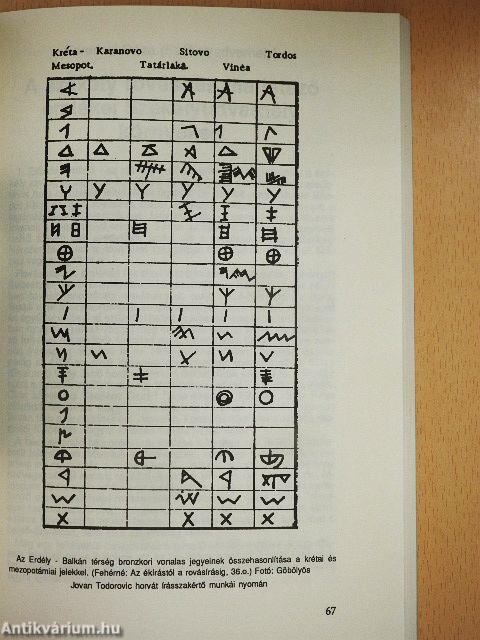 Kréta - Karanovo Sitovo Tordos
Mesopot. Tatárlaka. Vinča
Az Erdély - Balkán térség bronzkori vonalas jegyeinek összehasonlítása a krétai és
mezopotámiai jelekkel. (Fehérné: Az ékírástól a rovásírásig, 36.o.) Fotó: Göbölyös
Jovan Todorovic horvát írásszakértő munkái nyomán
67
Antikvárium.hu